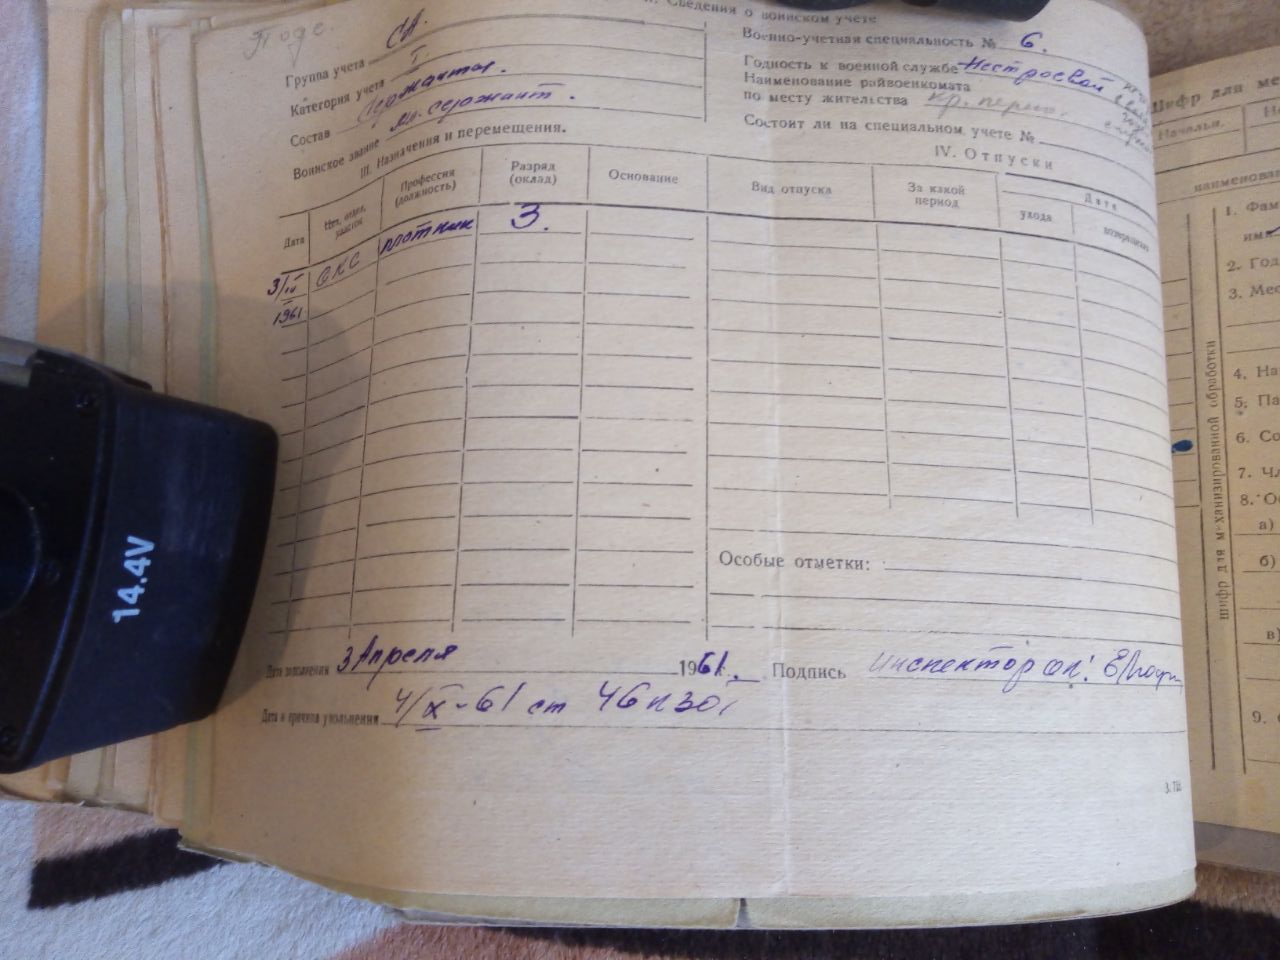 II. Сведения о воинском учете
Группа учета СА.
Категория учета I.
Состав Сержантск.
Воинское звание мл. сержант.
Военно-учетная специальность № 6.
Годность к военной службе Нестроевой
Наименование райвоенкомата
по месту жительства
Состоит ли на специальном учете №
III. Назначения и перемещения.
Дата
Профессия (должность)
Разряд (оклад)
Основание
3/IV 1961 ОКС плотник 3.
IV. Отпуски
Вид отпуска
За какой период
Дата
ухода
возвращения
Особые отметки:
Дата заполнения 3 Апреля 1961 г. Подпись инспектор ок:
Дата и причина увольнения 4/X-61 ст 46
14.4V
Шифр для ме
Начальн.
наименован
шифр для механизированной обработки
1. Фам
имя
2. Год
3. Мес
4. На
5. Па
6. Со
7. Чл
8. О
а)
б)
в)
9.